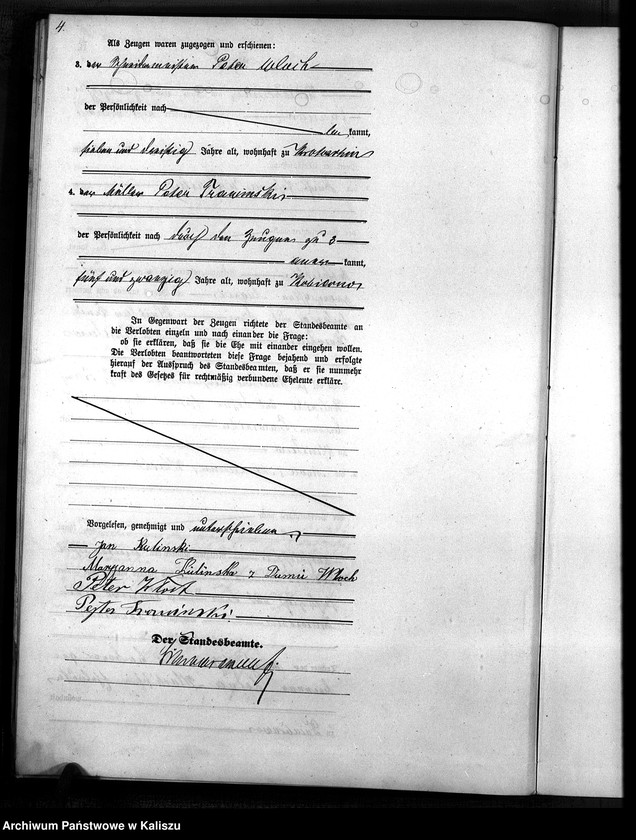 4.
Als Zeugen waren zugezogen und erschienen:
3. der Schneidermeister Peter Wloch
der Persönlichkeit nach
be kannt,
sieben und dreißig Jahre alt, wohnhaft zu Krotoschin
4. der Müller Peter
der Persönlichkeit nach durch den Zeugen zu 3
aner kannt,
fünf und zwanzig Jahre alt, wohnhaft zu
In Gegenwart der Zeugen richtete der Standesbeamte an
die Verlobten einzeln und nach einander die Frage:
ob sie erklären, daß sie die Ehe mit einander eingehen wollen.
Die Verlobten beantworteten diese Frage bejahend und erfolgte
hierauf der Ausspruch des Standesbeamten, daß er sie nunmehr
kraft des Gesetzes für rechtmäßig verbundene Eheleute erkläre.
Vorgelesen, genehmigt und unterschrieben
Jan Kulinski
Maryanna Kulinska z Domu Włoch
Peter Włoch
Der Standesbeamte.
Archiwum Państwowe w Kaliszu